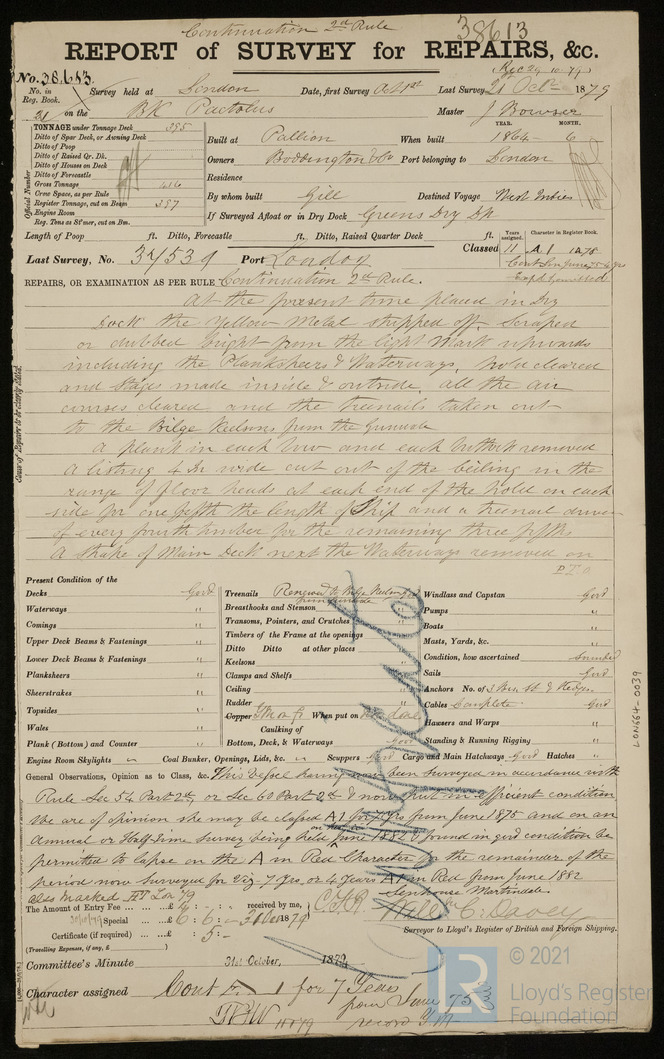 Continuation 2nd Rule
38613
REPORT of SURVEY for REPAIRS, &c.
(Rec 29.10.79)
No. 38613
No. in Reg. Book.
Survey held at London Date, first Survey Oct 1st Last Survey 21 Oct 1879
21 on the BK Pactolus Master J Bowser
TONNAGE under Tonnage Deck 395
Ditto of Spar Deck, or Awning Deck
Ditto of Poop
Ditto of Raised Qr. Dk.
Ditto of Houses on Deck
Ditto of Forecastle
Gross Tonnage 416
Crew Space, as per Rule
Register Tonnage, cut on Beam 387
Engine Room
Reg. Tons as St'mer, cut on Bm.
Official Number
YEAR. MONTH.
Built at Pallion When built 1864 - 6
Owners Boddington & Co Port belonging to London
Residence
By whom built Gill Destined Voyage West Indies
If Surveyed Afloat or in Dry Dock Greens Dry Dk
Length of Poop ft. Ditto, Forecastle ft. Ditto, Raised Quarter Deck ft.
Years assigned. Character in Register Book.
Last Survey, No. 34539 Port London Classed 11 A 1 12,78
Cont Lon June 75-4 yrs
REPAIRS, OR EXAMINATION AS PER RULE Continuation 2nd Rule.
At the present time placed in Dry
Dock the Yellow Metal stripped off. Scraped
or dubbed bright from the light Mark upwards
including the Planksheers & Waterways, hold cleared
and Stages made inside & outside, all the air
courses cleared and the treenails taken out
to the Bilge Keelsons from the Gunwale
A plank in each bow and each buttock removed
A listing 4 In wide cut out of the ceiling in the
range of floor heads at each end of the hold on each
side for one fifth the length of Ship and a treenail driven
of every fourth timber for the remaining three fifths
A strake of Main Deck next the Waterways removed on
P T O
Cause of Repairs to be clearly stated.
Present Condition of the
Decks Good
Waterways "
Comings "
Upper Deck Beams & Fastenings "
Lower Deck Beams & Fastenings "
Planksheers "
Sheerstrakes "
Topsides "
Wales "
Plank (Bottom) and Counter "
Engine Room Skylights "
Treenails Renewed to Bilge Keelsons from gunwale
Breasthooks and Stemson "
Transoms, Pointers, and Crutches "
Timbers of the Frame at the openings "
Ditto Ditto at other places "
Keelsons "
Clamps and Shelfs "
Ceiling "
Rudder "
Copper When put on
Caulking of
Bottom, Deck, & Waterways Good
Coal Bunker, Openings, Lids, &c. " Scuppers Good Cargo and Main Hatchways Good Hatches "
Windlass and Capstan Good
Pumps "
Boats "
Masts, Yards, &c. "
Condition, how ascertained Sounded
Sails Good
Anchors No. of 3 Bow, St & Kedges
Cables Complete Good
Hawsers and Warps "
Standing & Running Rigging "
LON664-0039
General Observations, Opinion as to Class, &c. This Vessel having now been surveyed in accordance with
Rule Sec 54 Part 2nd, or Sec 60 Part 2nd & now put in efficient condition
We are of opinion she may be classed A 1 for 7 Yrs from June 1875 and on an
Annual or Half-time Survey being held June 1882 & found in good condition be
permitted to lapse on the A in Red Character for the remainder of the
period now Surveyed for Viz 7 Yrs or 4 Years A1 in Red from June 1882
also Marked
The Amount of Entry Fee ... £ 4 : - : -
received by me,
30/10/79 Special ... £ 6 : 6 : - 31 Oct 1879
Certificate (if required) ... : 5 : -
(Travelling Expenses, if any, £ )
Senhouse Martindale
Will C. Davey
Surveyor to Lloyd's Register of British and Foreign Shipping.
Committee's Minute 31st October, 1879
Character assigned Cont A 1 for 7 Years
from June 75
record Y.M.
© 2021
LR
Lloyd's Register
Foundation